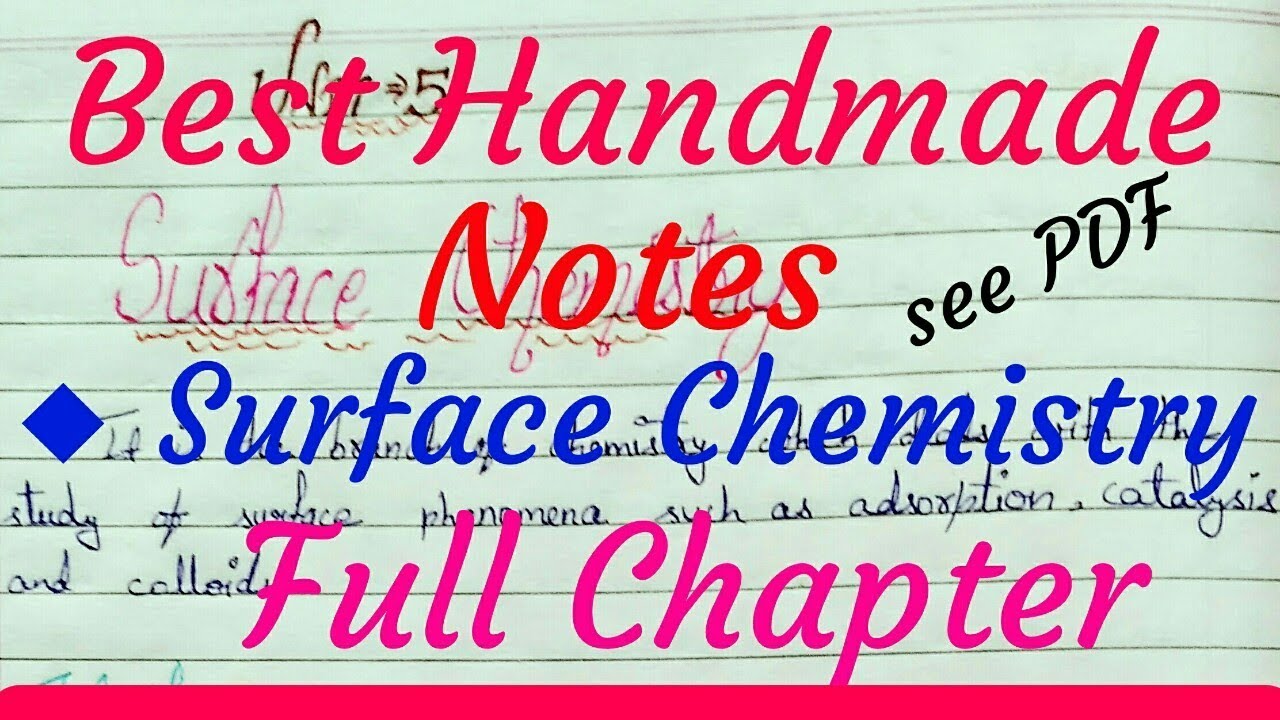 Best Handmade
Unit ⇒ 5
Notes
Surface Chemistry
see PDF
◆ Surface Chemistry
It is the branch of chemistry which deals with the
study of surface phenomena such as adsorption, catalysis
and colloids
Full Chapter